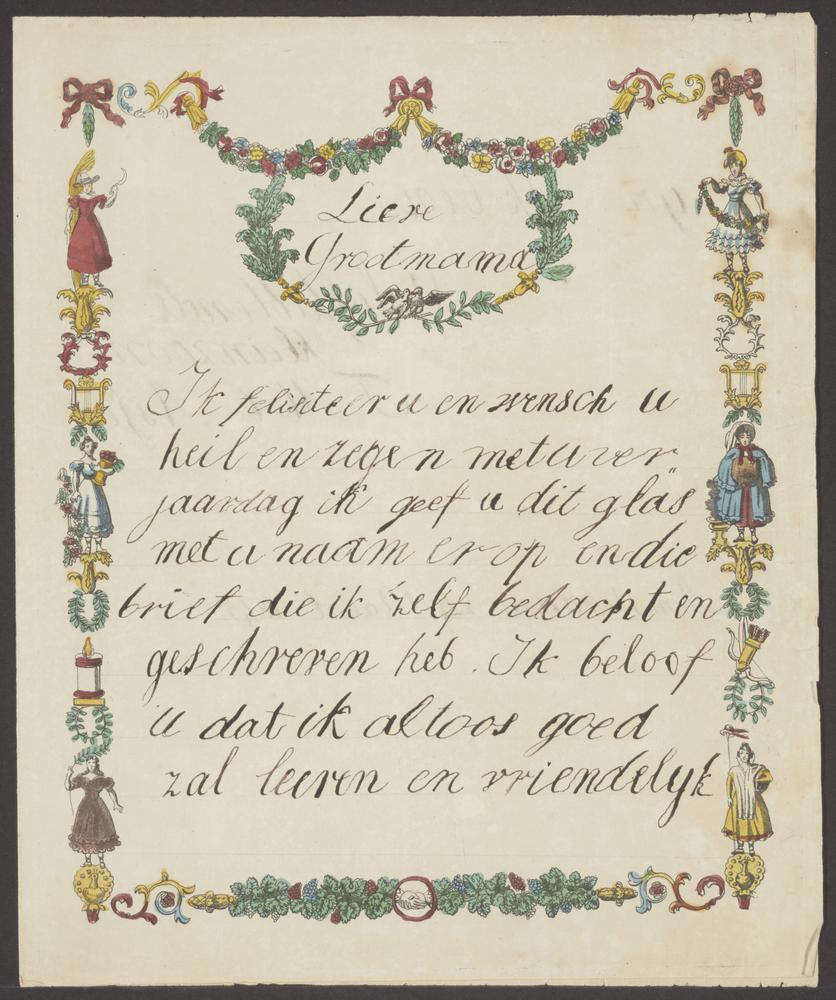 Lieve
Grootmama
Ik feliciteer u en wensch u
heil en zegen met uwer
jaardag ik geef u dit glas
met u naam er op en die
brief die ik zelf bedacht en
geschreven heb. Ik beloof
u dat ik altoos goed
zal leeren en vriendelyk